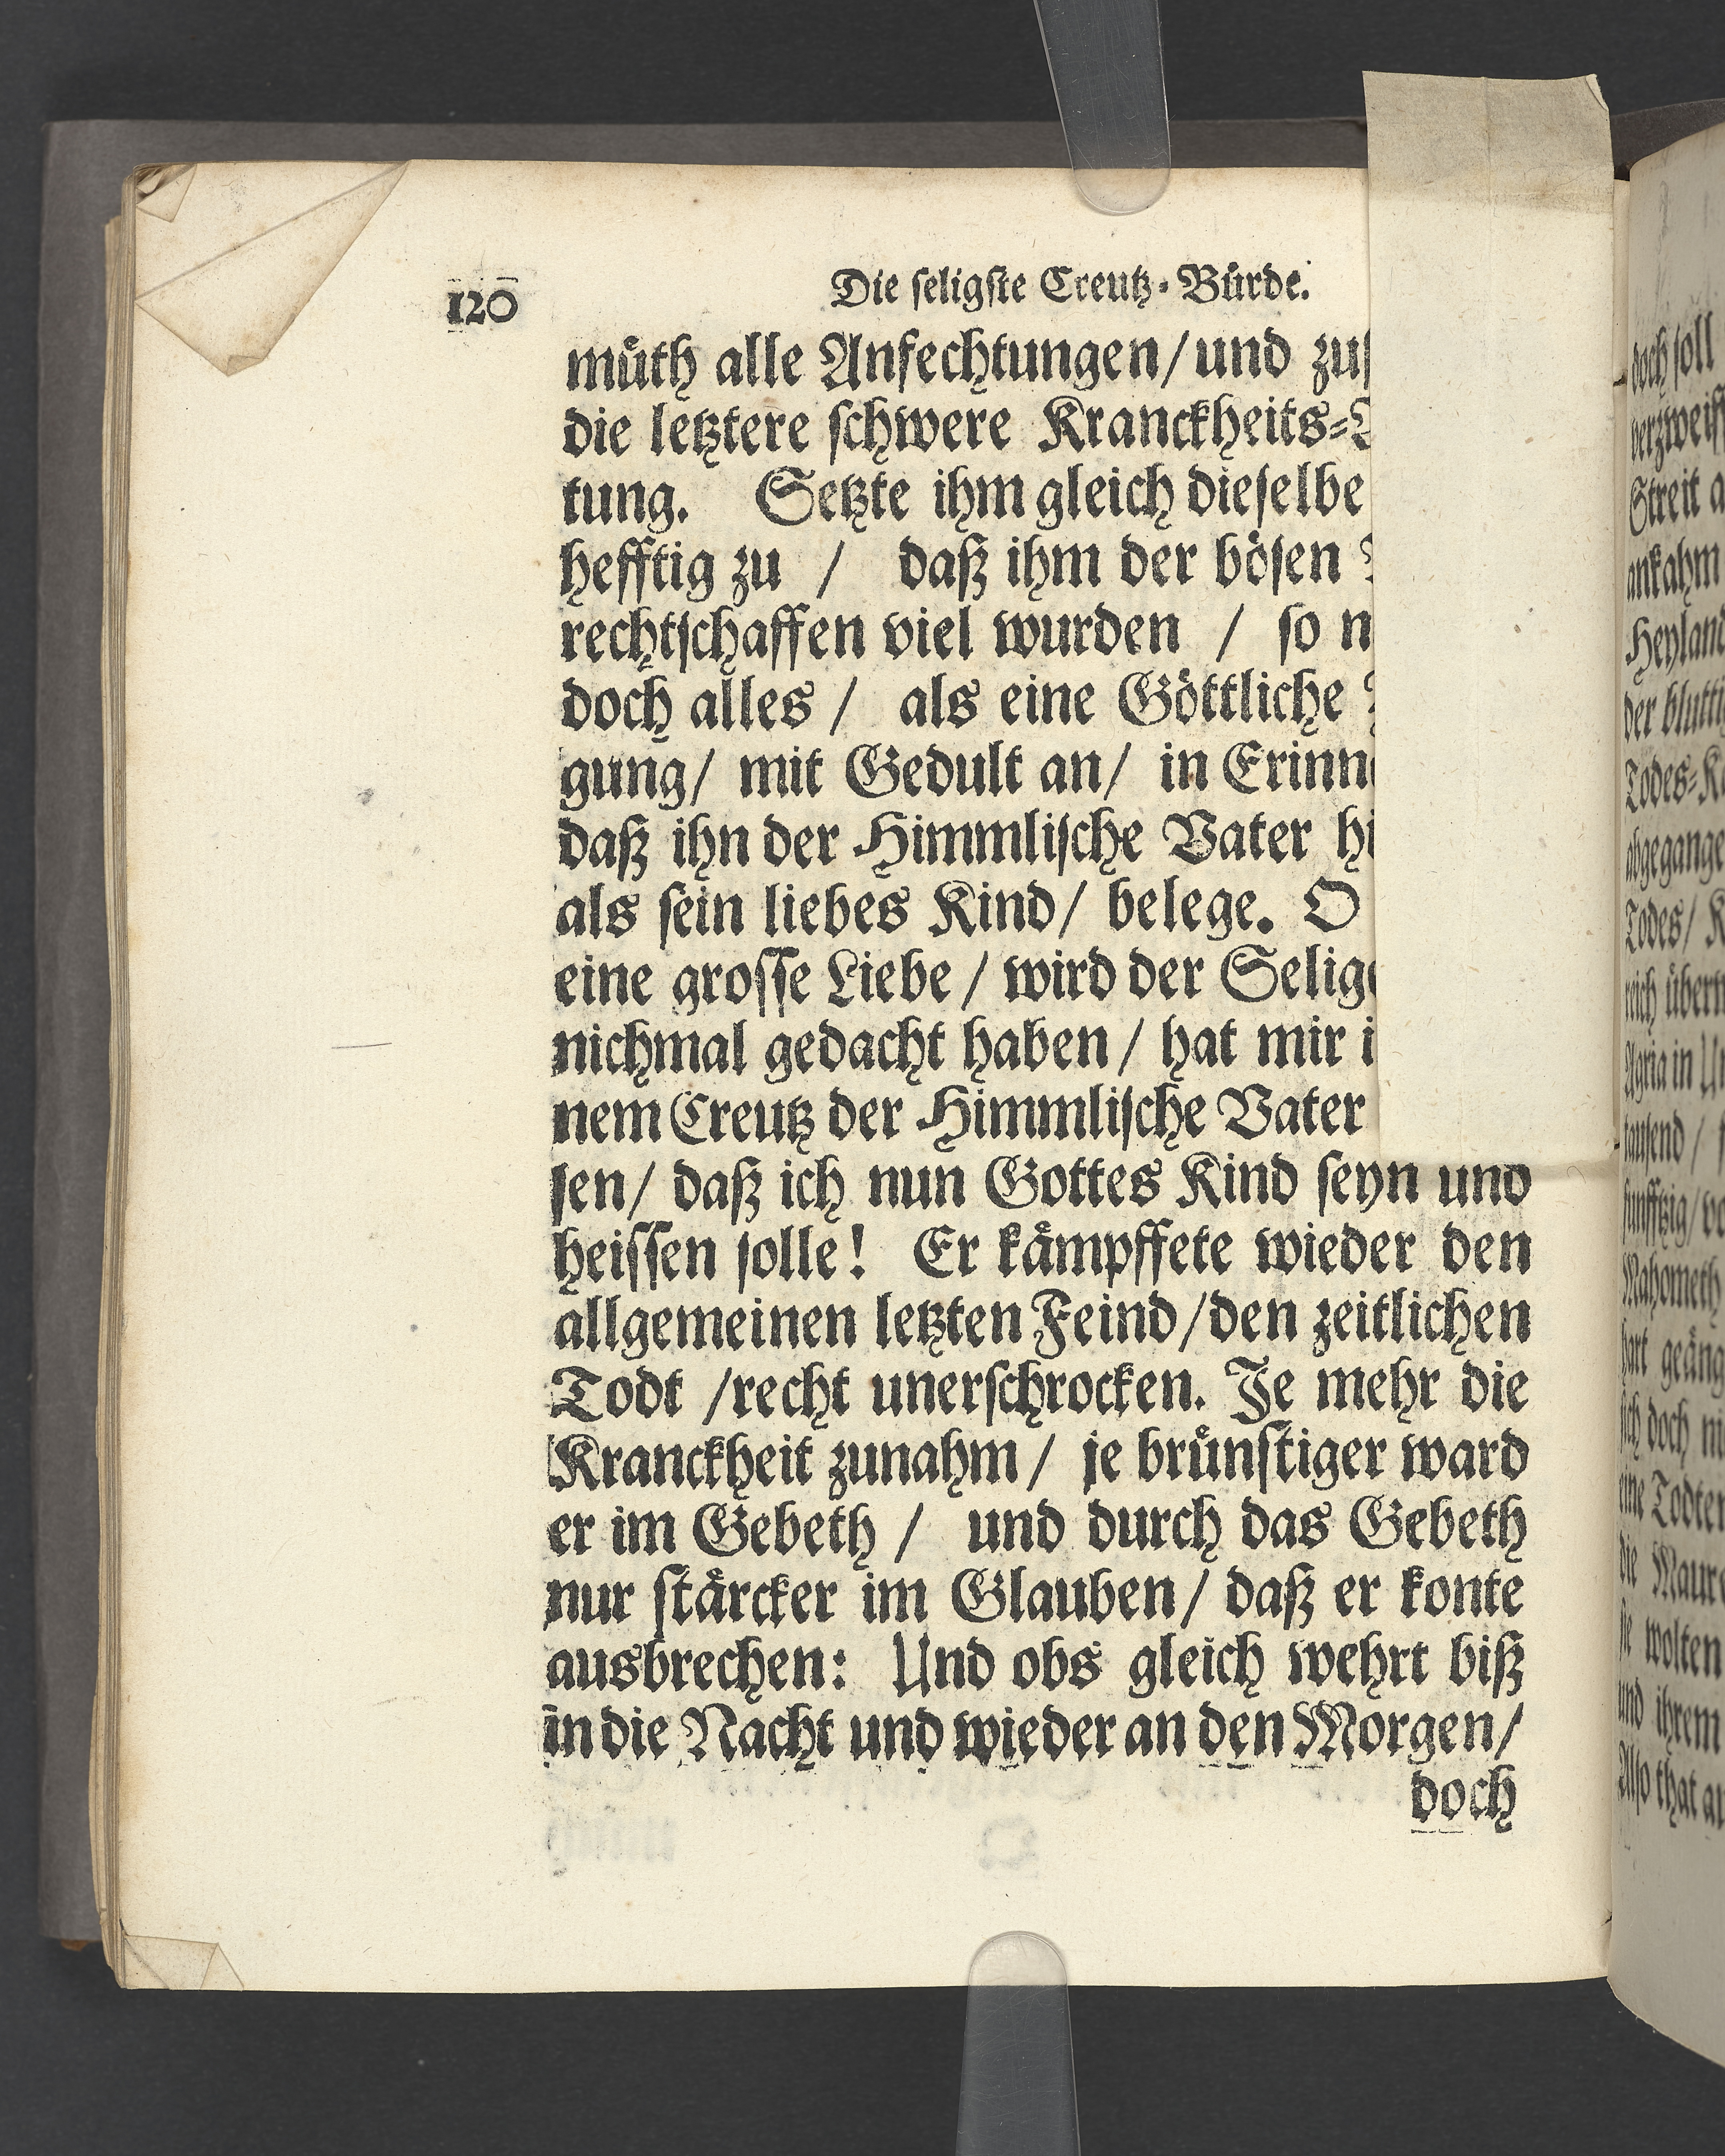 120
Die seligste Creutz-Bürde.
müth alle Anfechtungen/und
die letztere schwere Kranckheits-
tung. Setzte ihm gleich dieselbe
hefftig zu / daß ihm der bösen
rechtschaffen viel wurden / so
doch alles / als eine Göttliche
gung/ mit Gedult an/ in
daß ihn der Himmlische Vater
als sein liebes Kind/ belege. O
eine grosse Liebe / wird der
nichmal gedacht haben / hat mir
nem Creutz der Himmlische Vater
sen/ daß ich nun Gottes Kind seyn und
heissen solle! Er kämpffete wieder den
allgemeinen letzten Feind/den zeitlichen
Todt /recht unerschrocken. Je mehr die
Kranckheit zunahm / je brünstiger ward
er im Gebeth / und durch das Gebeth
nur stärcker im Glauben/ daß er konte
ausbrechen: Und obs gleich wehrt biß
in die Nacht und wieder an den Morgen/
doch
doch soll
Streit
ankahm
Heyland
der
Todes-
Todes/
Agria in
tausend /
Mahometh
sich doch
eine
die
sie wolten
und ihrem
Also that